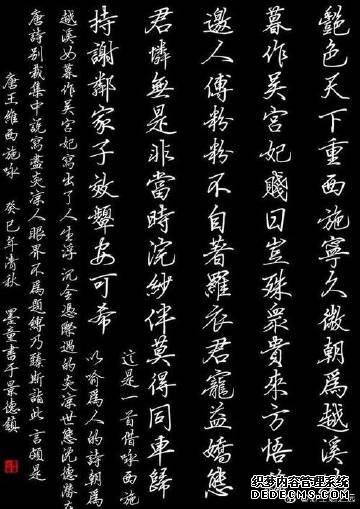 艷色天下重西施寧久微朝爲越溪
暮作吳宮妃賤日豈殊衆貴來方悟
邀人傅粉粉不自著羅衣君寵益嬌態
君憐無是非當時浣紗伴莫得同車歸
持謝鄰家子效顰安可希
這是一首借咏西施
以喻爲人的詩朝爲
越溪女暮作吳宮妃寫出了人生浮沉全憑際遇的炎凉世態沈德潛在
唐詩別裁集中説寫盡炎凉人眼界不爲題縛乃臻斯詣此言頗是
唐王維西施咏 癸巳年清秋 墨童書于景德鎮
织梦内容管理系统
DEDECMS.COM